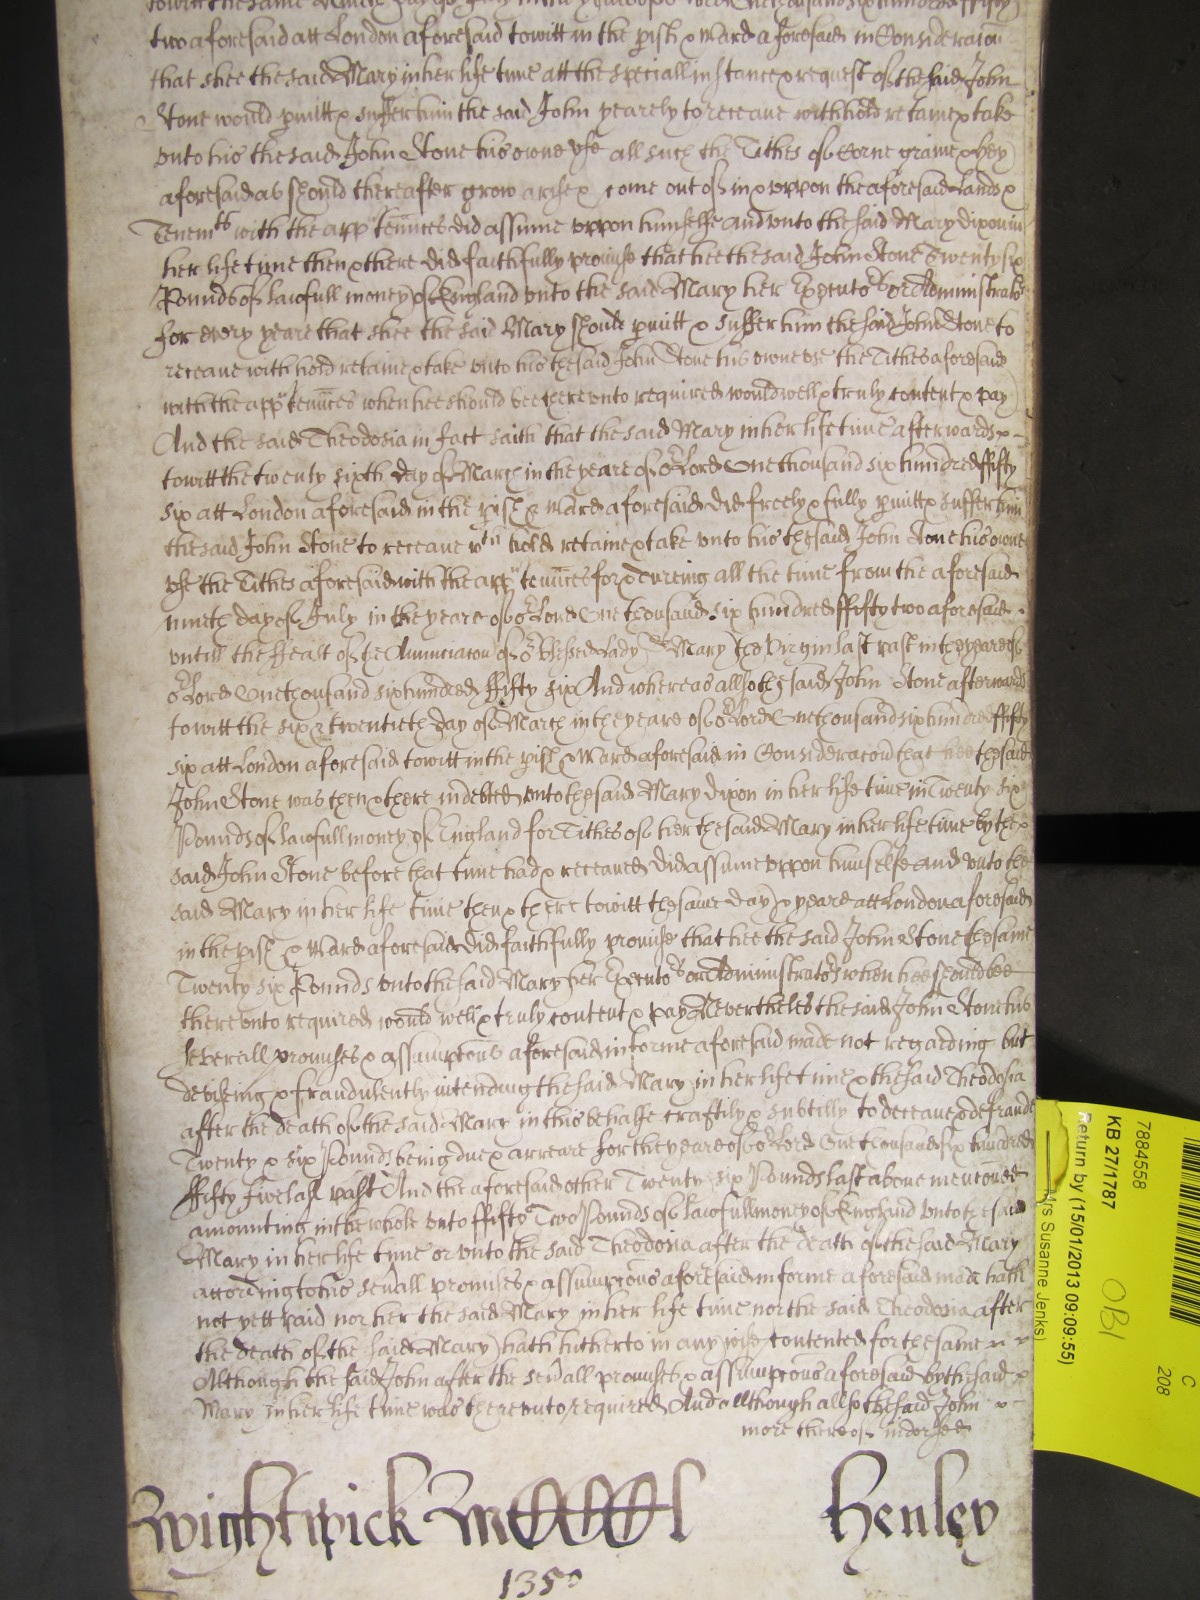 towitt the same Nineth day of July in the yeare of or Lord One thousand six hundred ffifty
two aforesaid att London aforesaid towitt in the pish & Ward aforesaid in Consideracon
that shee the said Mary in her life tyme att the speciall instance & request of the said John
Stone would pmitt & suffer him the said John yearely to receave withhold retaine & take
vnto his the said John Stone his owne vse all such the Tithes of Corne graine & Hey
aforesaid as should thereafter grow arise & come out of in & vppon the aforesaid Lands &
Tenemts with the appurtenn̄ces did assume vppon himselfe And vnto the said Mary Dixon in
her life tyme then & there did faithfully promise that hee the said John Stone Twenty six
Pounds of lawfull money of England vnto the said Mary her Executors or Administrators
for every yeare that shee the said Mary should pmitt & suffer him the said John Stone to
receave with hold retaine & take vnto his the said John Stone his owne vse the Tithes aforesaid
with the appurtenn̄ces when hee should bee therevnto required would well & truly content & pay
And the said Theodosia in fact saith that the said Mary in her life tyme afterwards
towitt the twenty sixth day of March in the yeare of or Lord One thousand six hundred ffifty
six att London aforesaid in the pish & Ward aforesaid did freely & fully pmitt & suffer him
the said John Stone to receave wth hold retaine & take vnto his the said John Stone his owne
vse the Tithes aforesaid with the appurtenn̄ces for & dureing all the time from the aforesaid
nineth day of July in the yeare of or Lord One thousand six hundred ffifty two aforesaid
vntill the ffeast of the Anunciacon of or Blessed Lady Mary the Virgin last past in the yeare of
or Lord One thousand six hundred ffifty six And whereas allso the said John Stone afterwards
towitt the six & twentieth day of March in the yeare of or Lord One thousand six hundred ffifty
six att London aforesaid towitt in the pish & Ward aforesaid in Consideracon that hee the said
John Stone was then & there indebted vnto the said Mary Dixon in her life time in Twenty six
Pounds of lawfull money of England for Tithes of her the said Mary in her life time by the
said John Stone before that time had & receaved did assume vppon himselfe And vnto the
said Mary in her life time then & there towitt the same day & yeare att London aforesaid
in the pish & Ward aforesaid did faithfully promise that hee the said John Stone the same
Twenty six Pounds vnto the said Mary her Executors or Administrators when hee should bee
therevnto required would well & truly content & pay Neverthelesse the said John Stone his
severall promises & assumptions aforesaid in forme aforesaid made not regarding but
devising & fraudulently intending the said Mary in her life time & the said Theodosia
after the death of the said Mary in this behalfe craftily & subtilly to deceave & defraude
Twenty & six Pounds being due & arreare for the yeare of or Lord One thousand six hundred
ffifty five last past And the aforesaid other Twenty six Pounds last above mencōned
amounting in the whole vnto ffifty Two Pounds of lawfull money of England vnto the said
Mary in her life time or vnto the said Theodosia after the death of the said Mary
according to his sevall promises & assumpcons aforesaid in forme aforesaid made hath
not yett paid nor her the said Mary in her life time nor the said Theodosia after
the death of the said Mary hath hitherto in any wise contented for the same
Although the said John after the sevall promises & assumpcons aforesaid by the said
Mary in her life time was therevnto required And allthough allso the said John
more thereof indorsed
Wightwick Henley
1350
7884558
KB 27/1787
Return by (15/01/2013 09:09:55)
Mrs Susanne Jenks)
OBI
C
208